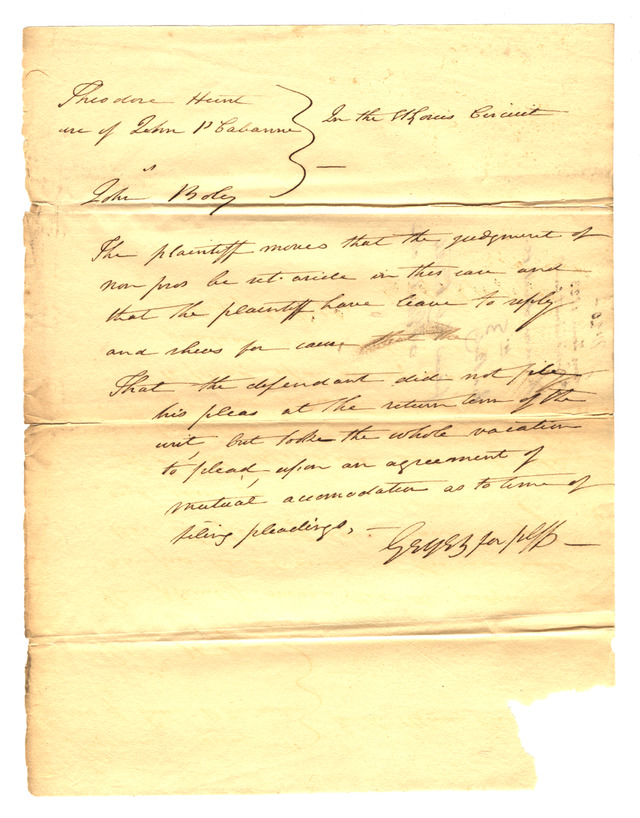 Theodore Hunt
use of John P Cabanne
vs
John Boly
In the St Louis Circuit
The plaintiff moves that the judgment of
non pros be set aside in this case and
that the plaintiff have leave to reply
and shews for cause that the
That the defendant did not file
his pleas at the return term of the
writ, but tooke the whole vacation
to plead, upon an agreement of
mutual accomodation as to time of
filing pleadings, —
Geyer for plff —